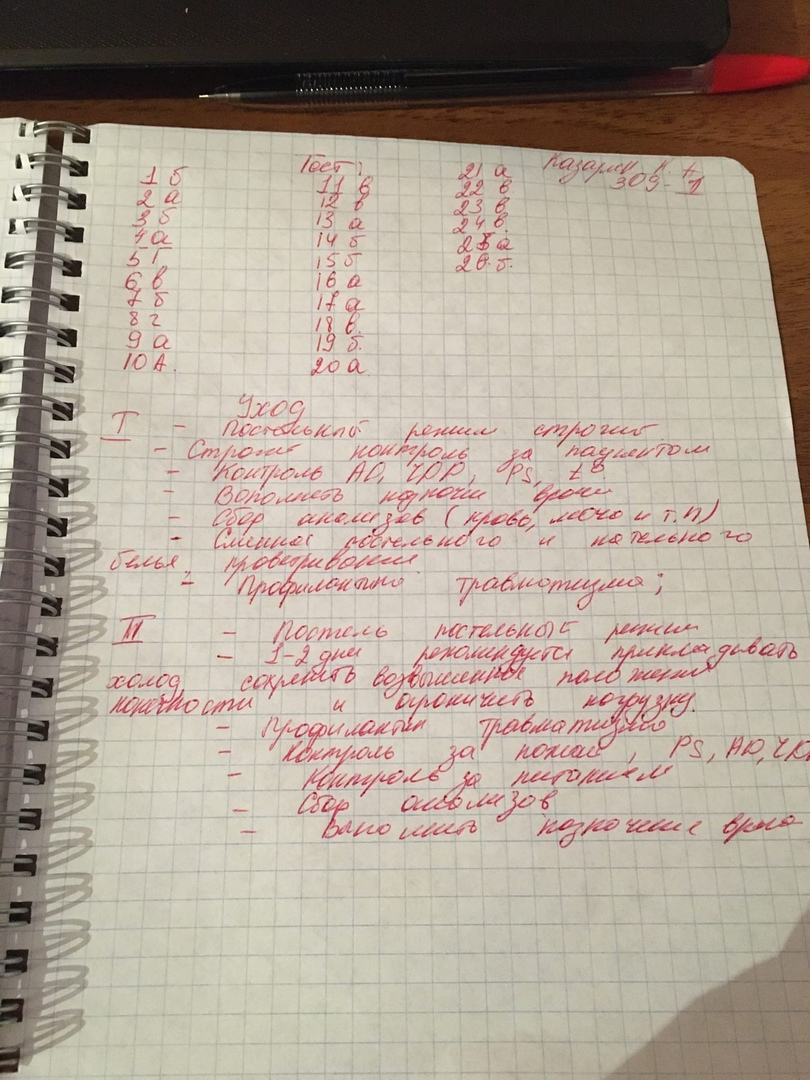 Тест:
Казарян К. А.
309-II
1 б
2 а
3 б
4 а
5 г
6 в
7 б
8 г
9 а
10 А.
11 в
12 в
13 а
14 б
15 б
16 а
17 а
18 в.
19 б.
20 а
21 а
22 в
23 в
24 в.
25 а
26 б.
Уход
I - Постельный режим строгий
- Строгий контроль за пациентом
- Контроль АД, ЧДД, PS, t°.
- Вополнеть
- Сбор анализов (кровь, моча и т.п)
- Сменной постельного и нательного
белья, проветривание
- Профилактика травмотизма;
II - Постель постельный режим
- 1-2 дня рекомендуется прикладывать
холод сохранить возвышенное положение
конечности и ограничеть нагрузку.
- Профилактик травматизма
- Контроль за , PS, АД, ЧДД
- Контроль за питанием
- Сбор анализов
- Выполнить назначение врача